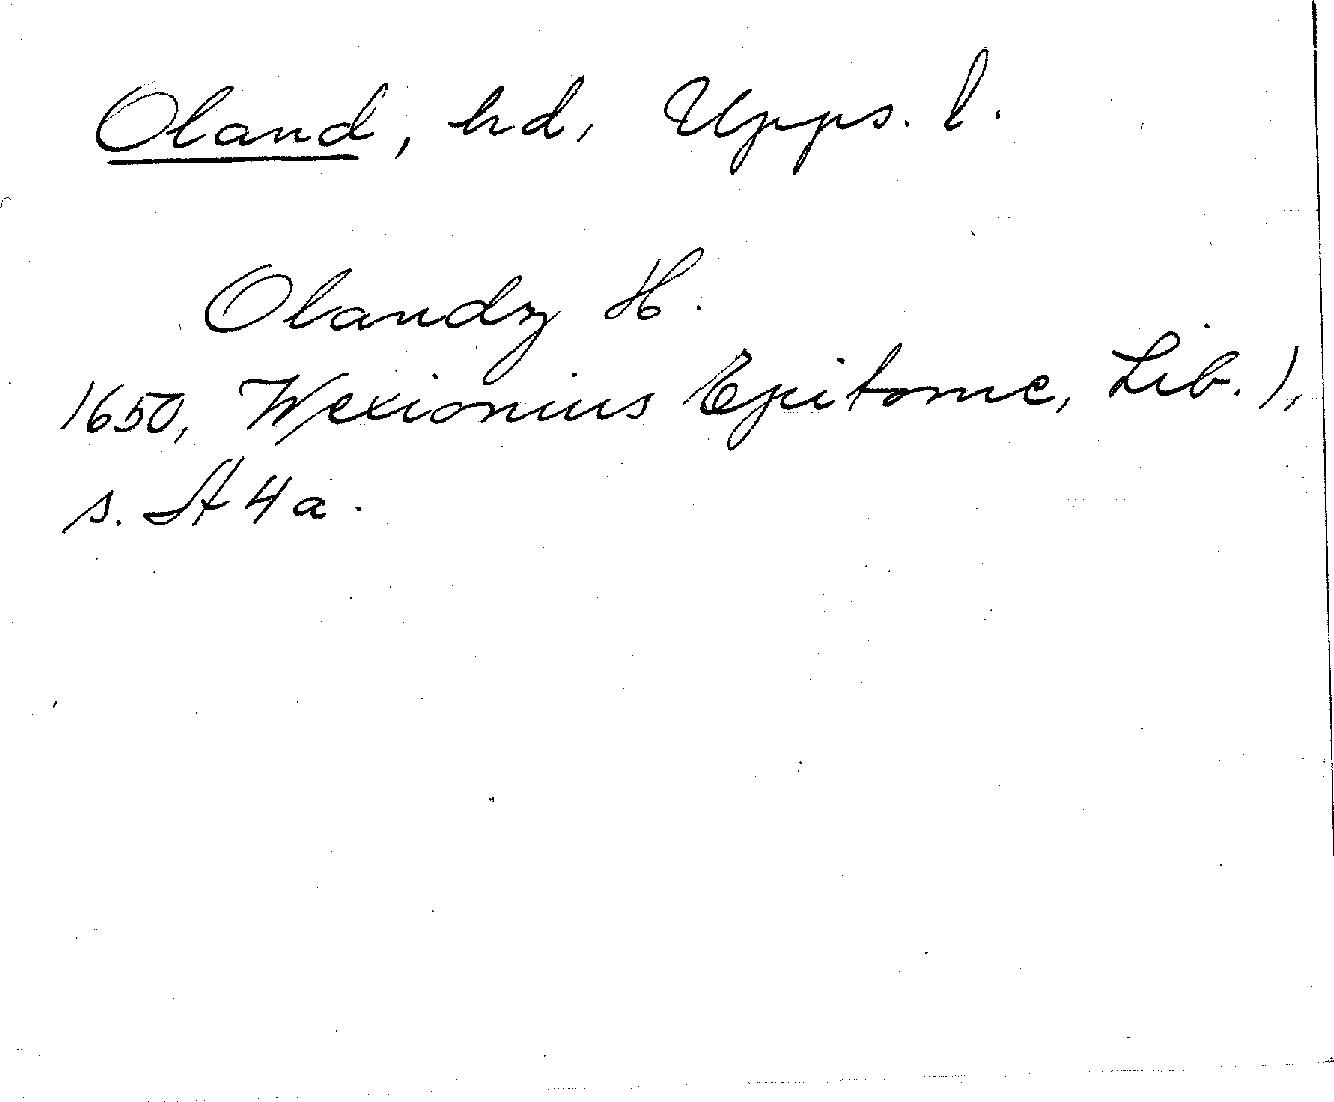 Oland, hd, Upps. l.
Olandz H.
1650, Wexionius Epitome, Lib. 1,
s. A 4 a.